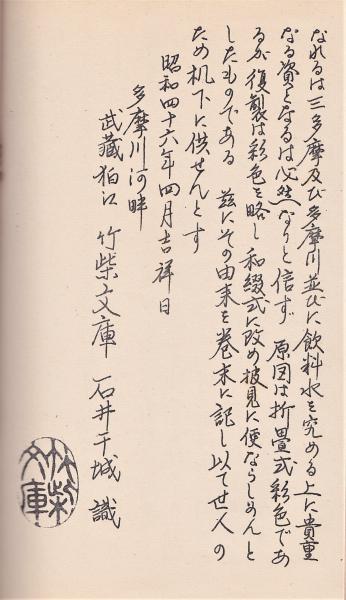 なれるは三多摩及び多摩川並びに飲料水を究める上に貴重
なる資となるは必然なりと信ず 原図は折畳式彩色であ
るが復製は彩色を略し和綴式に改め披見に便ならしめんと
したものである 茲にその由来を巻末に記し以て世人の
ため机下に供せんとす
昭和四十六年四月吉祥日
多摩川河畔
武蔵狛江 竹柴文庫 石井千城 識
竹柴文庫